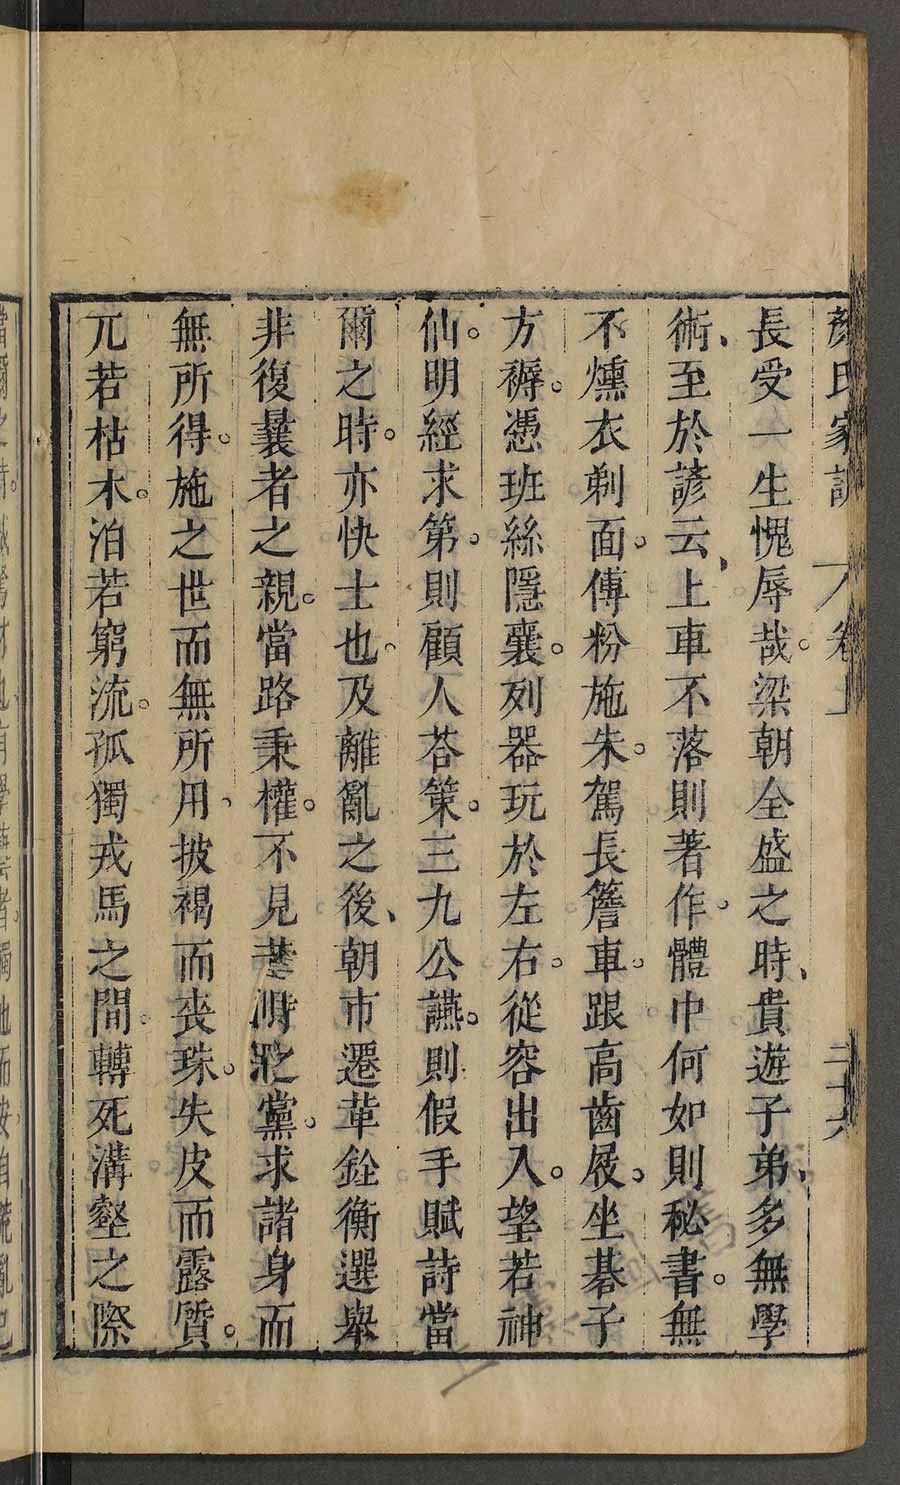 顏氏家訓 卷上 二十六
長受一生愧辱哉。梁朝全盛之時、貴遊子弟、多無學
術、至於諺云、上車不落則著作。體中何如則秘書。無
不燻衣剃面。傅粉施朱。駕長簷車。跟高齒屐。坐棊子
方褥。憑班絲隱囊。列器玩於左右。從容出入。望若神
仙。明經求第。則顧人荅策。三九公讌。則假手賦詩當
爾之時。亦快士也、及離亂之後、朝市遷革銓衡選舉
非復曩者之親。當路秉權。不見昔時之黨。求諸身而
無所得。施之世而無所用、披褐而喪珠。失皮而露質。
兀若枯木。泊若窮流。孤獨戎馬之間。轉死溝壑之際